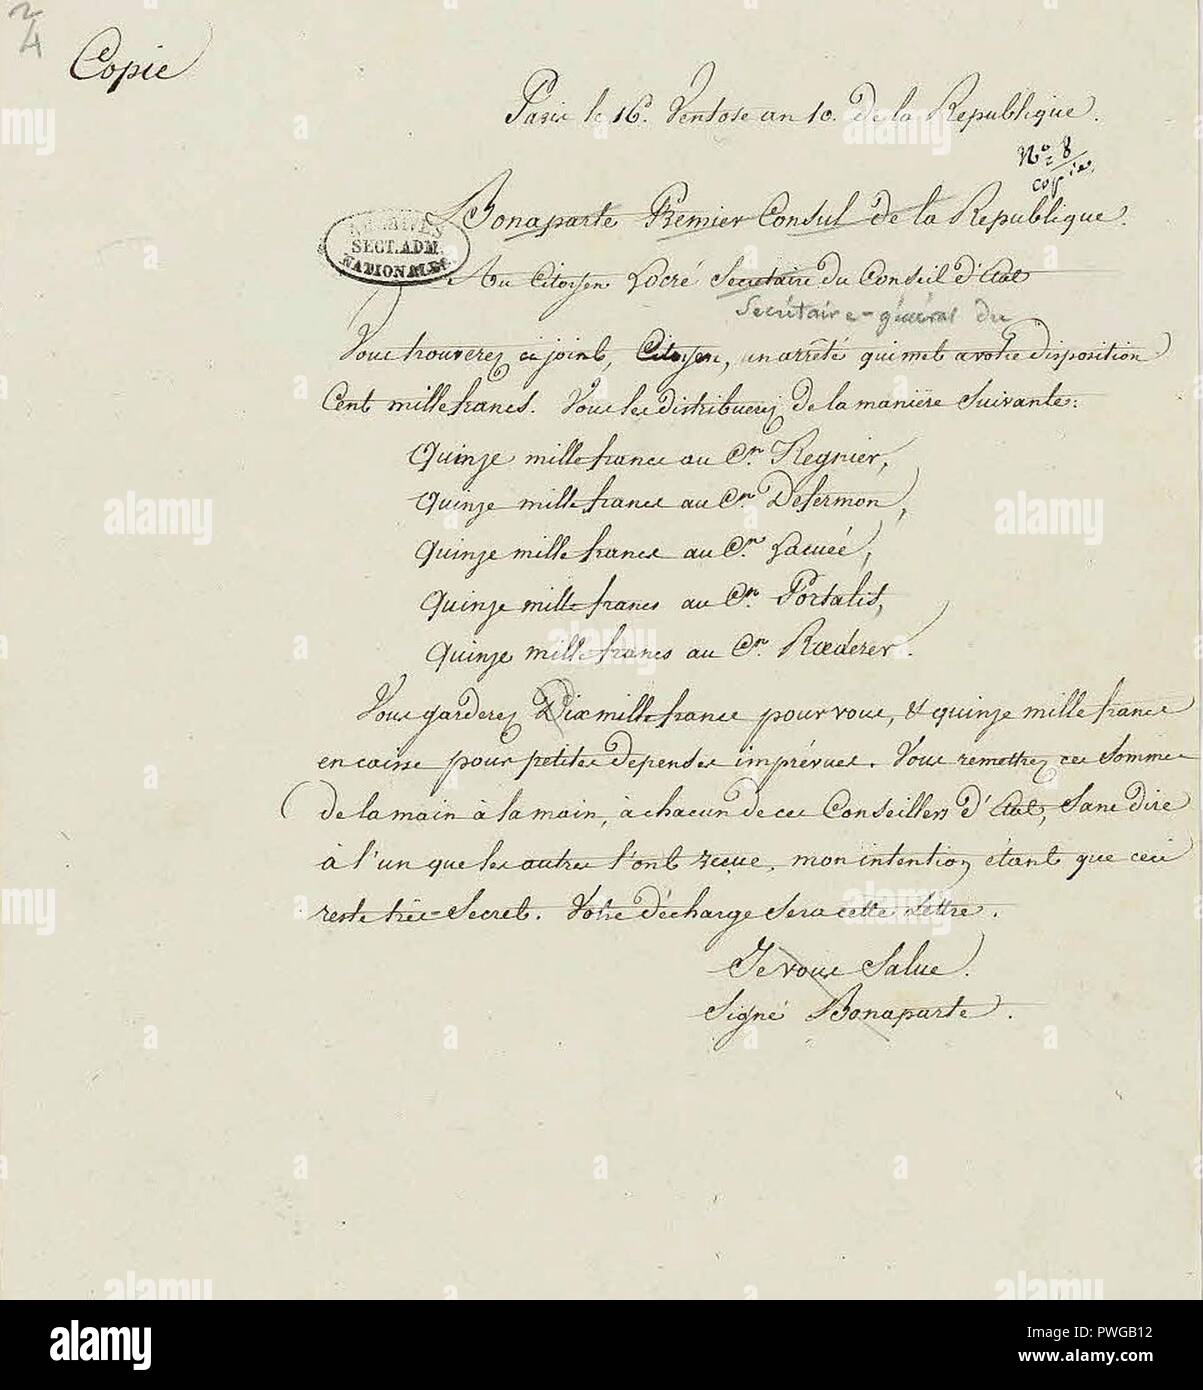 24
Copie
Paris le 16. Ventose an 10. de la Republique.
N.º 8
copie.
Bonaparte Premier Consul de la Republique.
ARCHIVES
SECT. ADM.
NATIONALES
Au Citoyen Locré Secretaire du Conseil d'État
Secrétaire-général du
Vous trouverez ci joint, Citoyen, un arrêté qui met a votre disposition
Cent mille francs. Vous les distribuerez de la manière suivante:
Quinze mille francs au C.en Regnier,
Quinze mille francs au C.en Defermon,
Quinze mille francs au C.en Lacuée,
Quinze mille francs au C.en Portalis,
Quinze mille francs au C.en Rœderer.
Vous garderez Dix mille francs pour vous, & quinze mille francs
en caisse pour petites depenses imprévues. Vous remettrez ces Sommes
de la main à la main, à chacun de ces Conseillers d'État, sans dire
à l'un que les autres l'ont reçue, mon intention étant que ceci
reste très-secret. Votre décharge sera cette Lettre.
Je vous Salue.
Signé Bonaparte.
alamy
Image ID: PWGB12
www.alamy.com